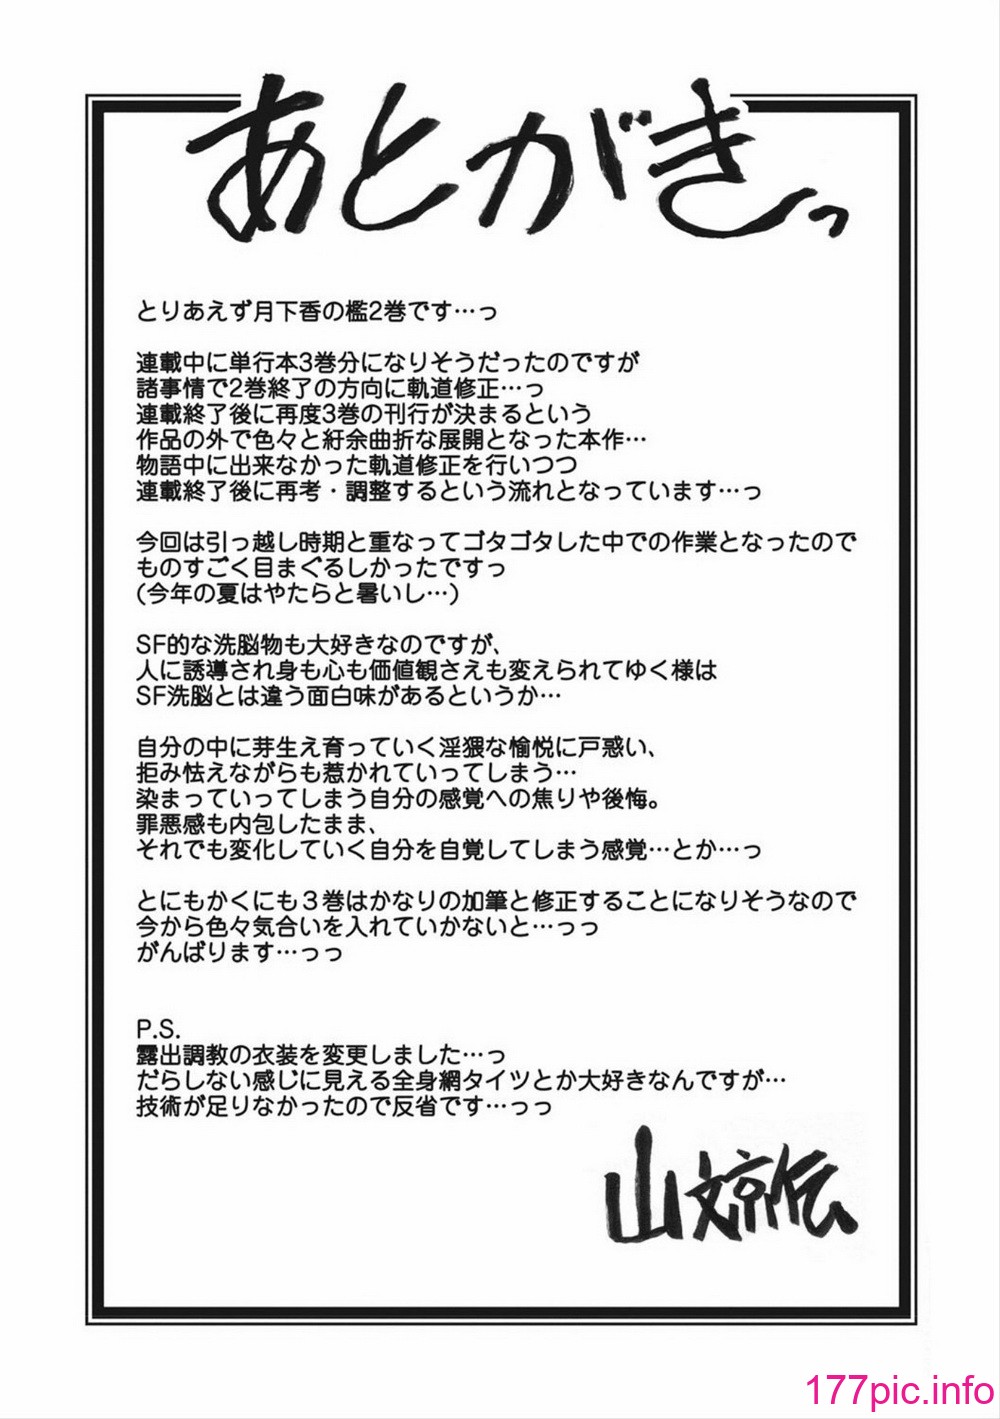 あとがきっ
とりあえず月下香の檻2巻です…っ
連載中に単行本3巻分になりそうだったのですが
諸事情で2巻終了の方向に軌道修正…っ
連載終了後に再度3巻の刊行が決まるという
作品の外で色々と紆余曲折な展開となった本作…
物語中に出来なかった軌道修正を行いつつ
連載終了後に再考・調整するという流れとなっています…っ
今回は引っ越し時期と重なってゴタゴタした中での作業となったので
ものすごく目まぐるしかったですっ
(今年の夏はやたらと暑いし…)
SF的な洗脳物も大好きなのですが、
人に誘導され身も心も価値観さえも変えられてゆく様は
SF洗脳とは違う面白味があるというか…
自分の中に芽生え育っていく淫猥な愉悦に戸惑い、
拒み怯えながらも惹かれていってしまう…
染まっていってしまう自分の感覚への焦りや後悔。
罪悪感も内包したまま、
それでも変化していく自分を自覚してしまう感覚…とか…っ
とにもかくにも３巻はかなりの加筆と修正することになりそうなので
今から色々気合いを入れていかないと…っっ
がんばります…っっ
P.S.
露出調教の衣装を変更しました…っ
だらしない感じに見える全身網タイツとか大好きなんですが…
技術が足りなかったので反省です…っっ
山文京伝
177pic.info